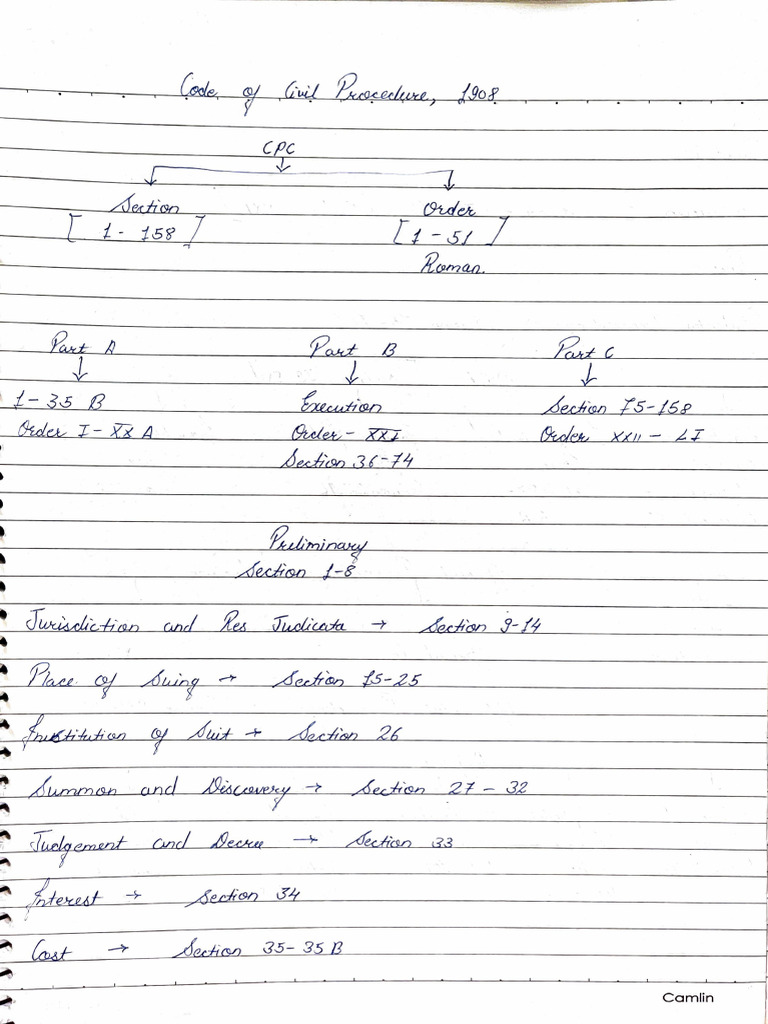 Code of Civil Procedure, 1908
CPC
Section Order
[ 1 - 158 ] [ 1 - 51 ]
Roman.
Part A Part B Part C
1 - 35 B Execution Section 75-158
Order I - XX A Order - XXI Order XXII - LI
Section 36-74
Preliminary
Section 1-8
Jurisdiction and Res Judicata → Section 9-14
Place of Suing → Section 15-25
Institution of Suit → Section 26
Summon and Discovery → Section 27 - 32
Judgement and Decree → Section 33
Interest → Section 34
Cost → Section 35-35 B
Camlin